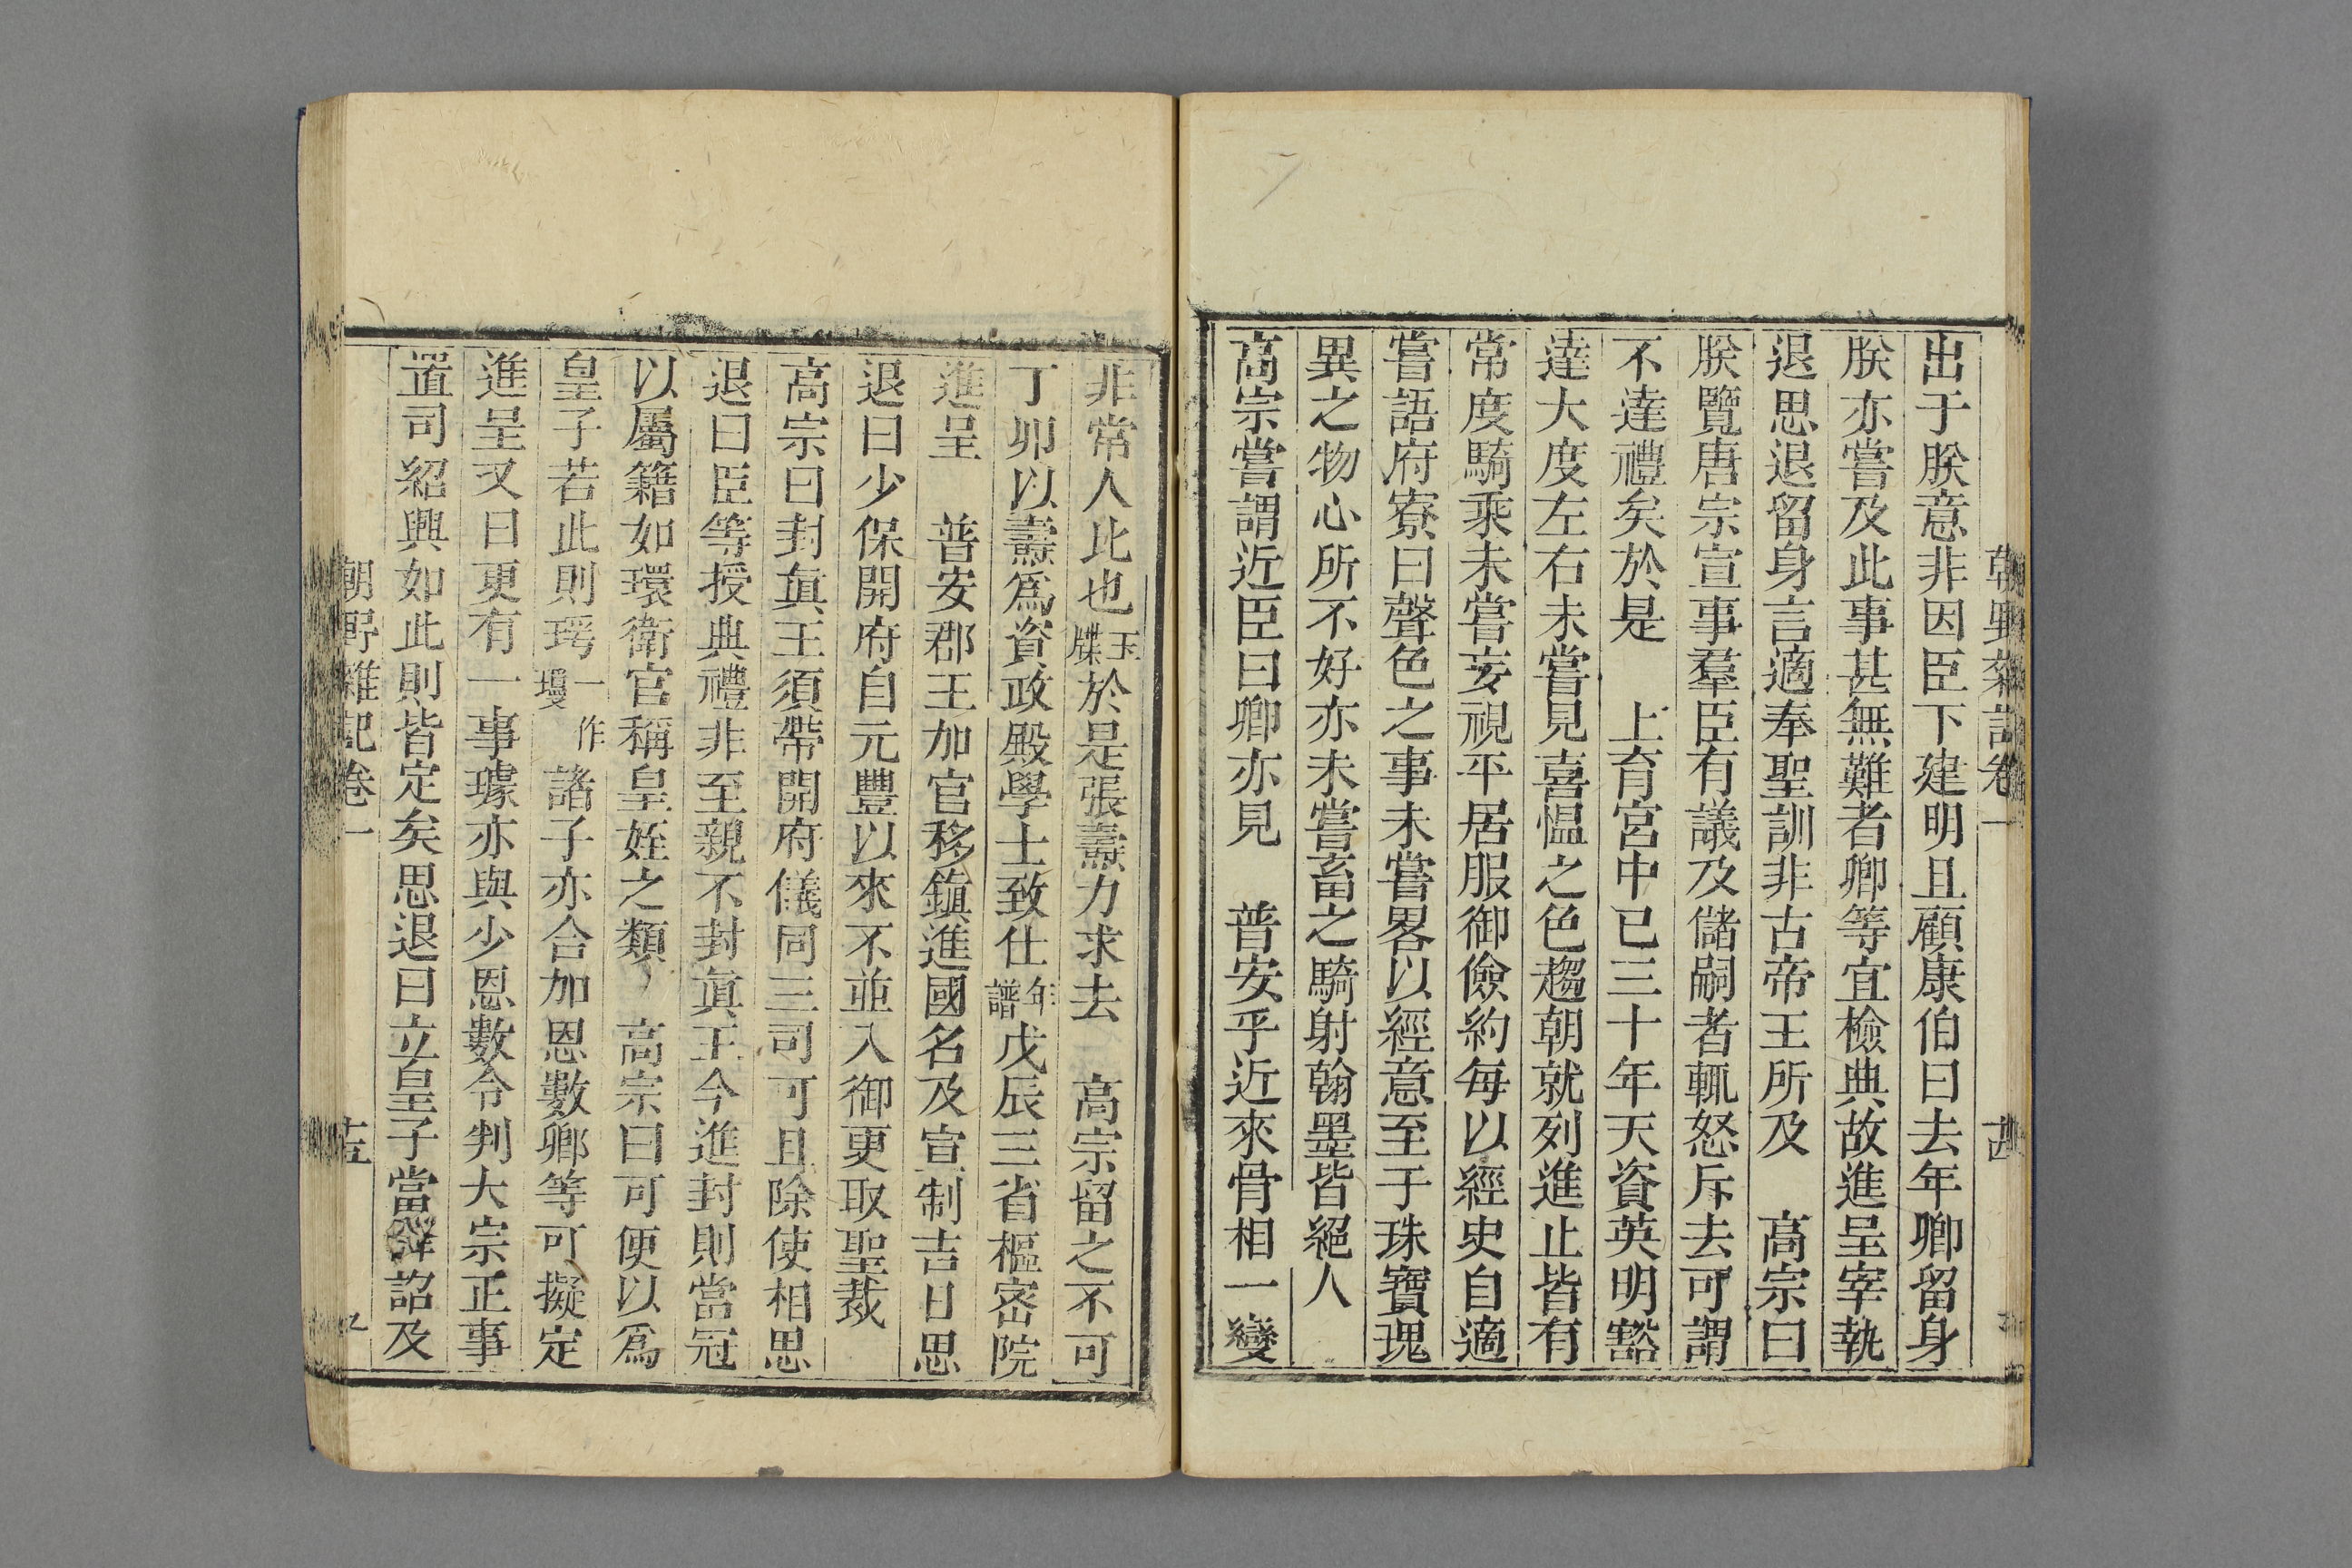 朝野雜記卷一
出于朕意非因臣下建明且顧康伯曰去年卿留身
朕亦嘗及此事甚無難者卿等宜檢典故進呈宰執
退思退留身言適奉聖訓非古帝王所及　高宗曰
朕覽唐宗宣事羣臣有議及儲嗣者輒怒斥去可謂
不達禮矣於是　上育宮中已三十年天資英明豁
達大度左右未嘗見喜慍之色趨朝就列進止皆有
常度騎乘未嘗妄視平居服御儉約每以經史自適
嘗語府寮曰聲色之事未嘗畧以經意至于珠寶瑰
異之物心所不好亦未嘗畜之騎射翰墨皆絕人
高宗嘗謂近臣曰卿亦見　普安乎近來骨相一變
非常人比也玉牒於是張燾力求去　高宗留之不可
丁卯以燾爲資政殿學士致仕年譜戊辰三省樞密院
進呈　普安郡王加官移鎮進國名及宣制吉日思
退曰少保開府自元豐以來不並入御更取聖裁
高宗曰封眞王須帶開府儀同三司可且除使相思
退曰臣等授典禮非至親不封眞王今進封則當冠
以屬籍如環衛官稱皇姪之類　高宗曰可便以爲
皇子若此則瑒一作璦諸子亦合加恩數卿等可擬定
進呈又曰更有一事璩亦與少恩數令判大宗正事
置司紹興如此則皆定矣思退曰立皇子當降詔及
朝野雜記卷一